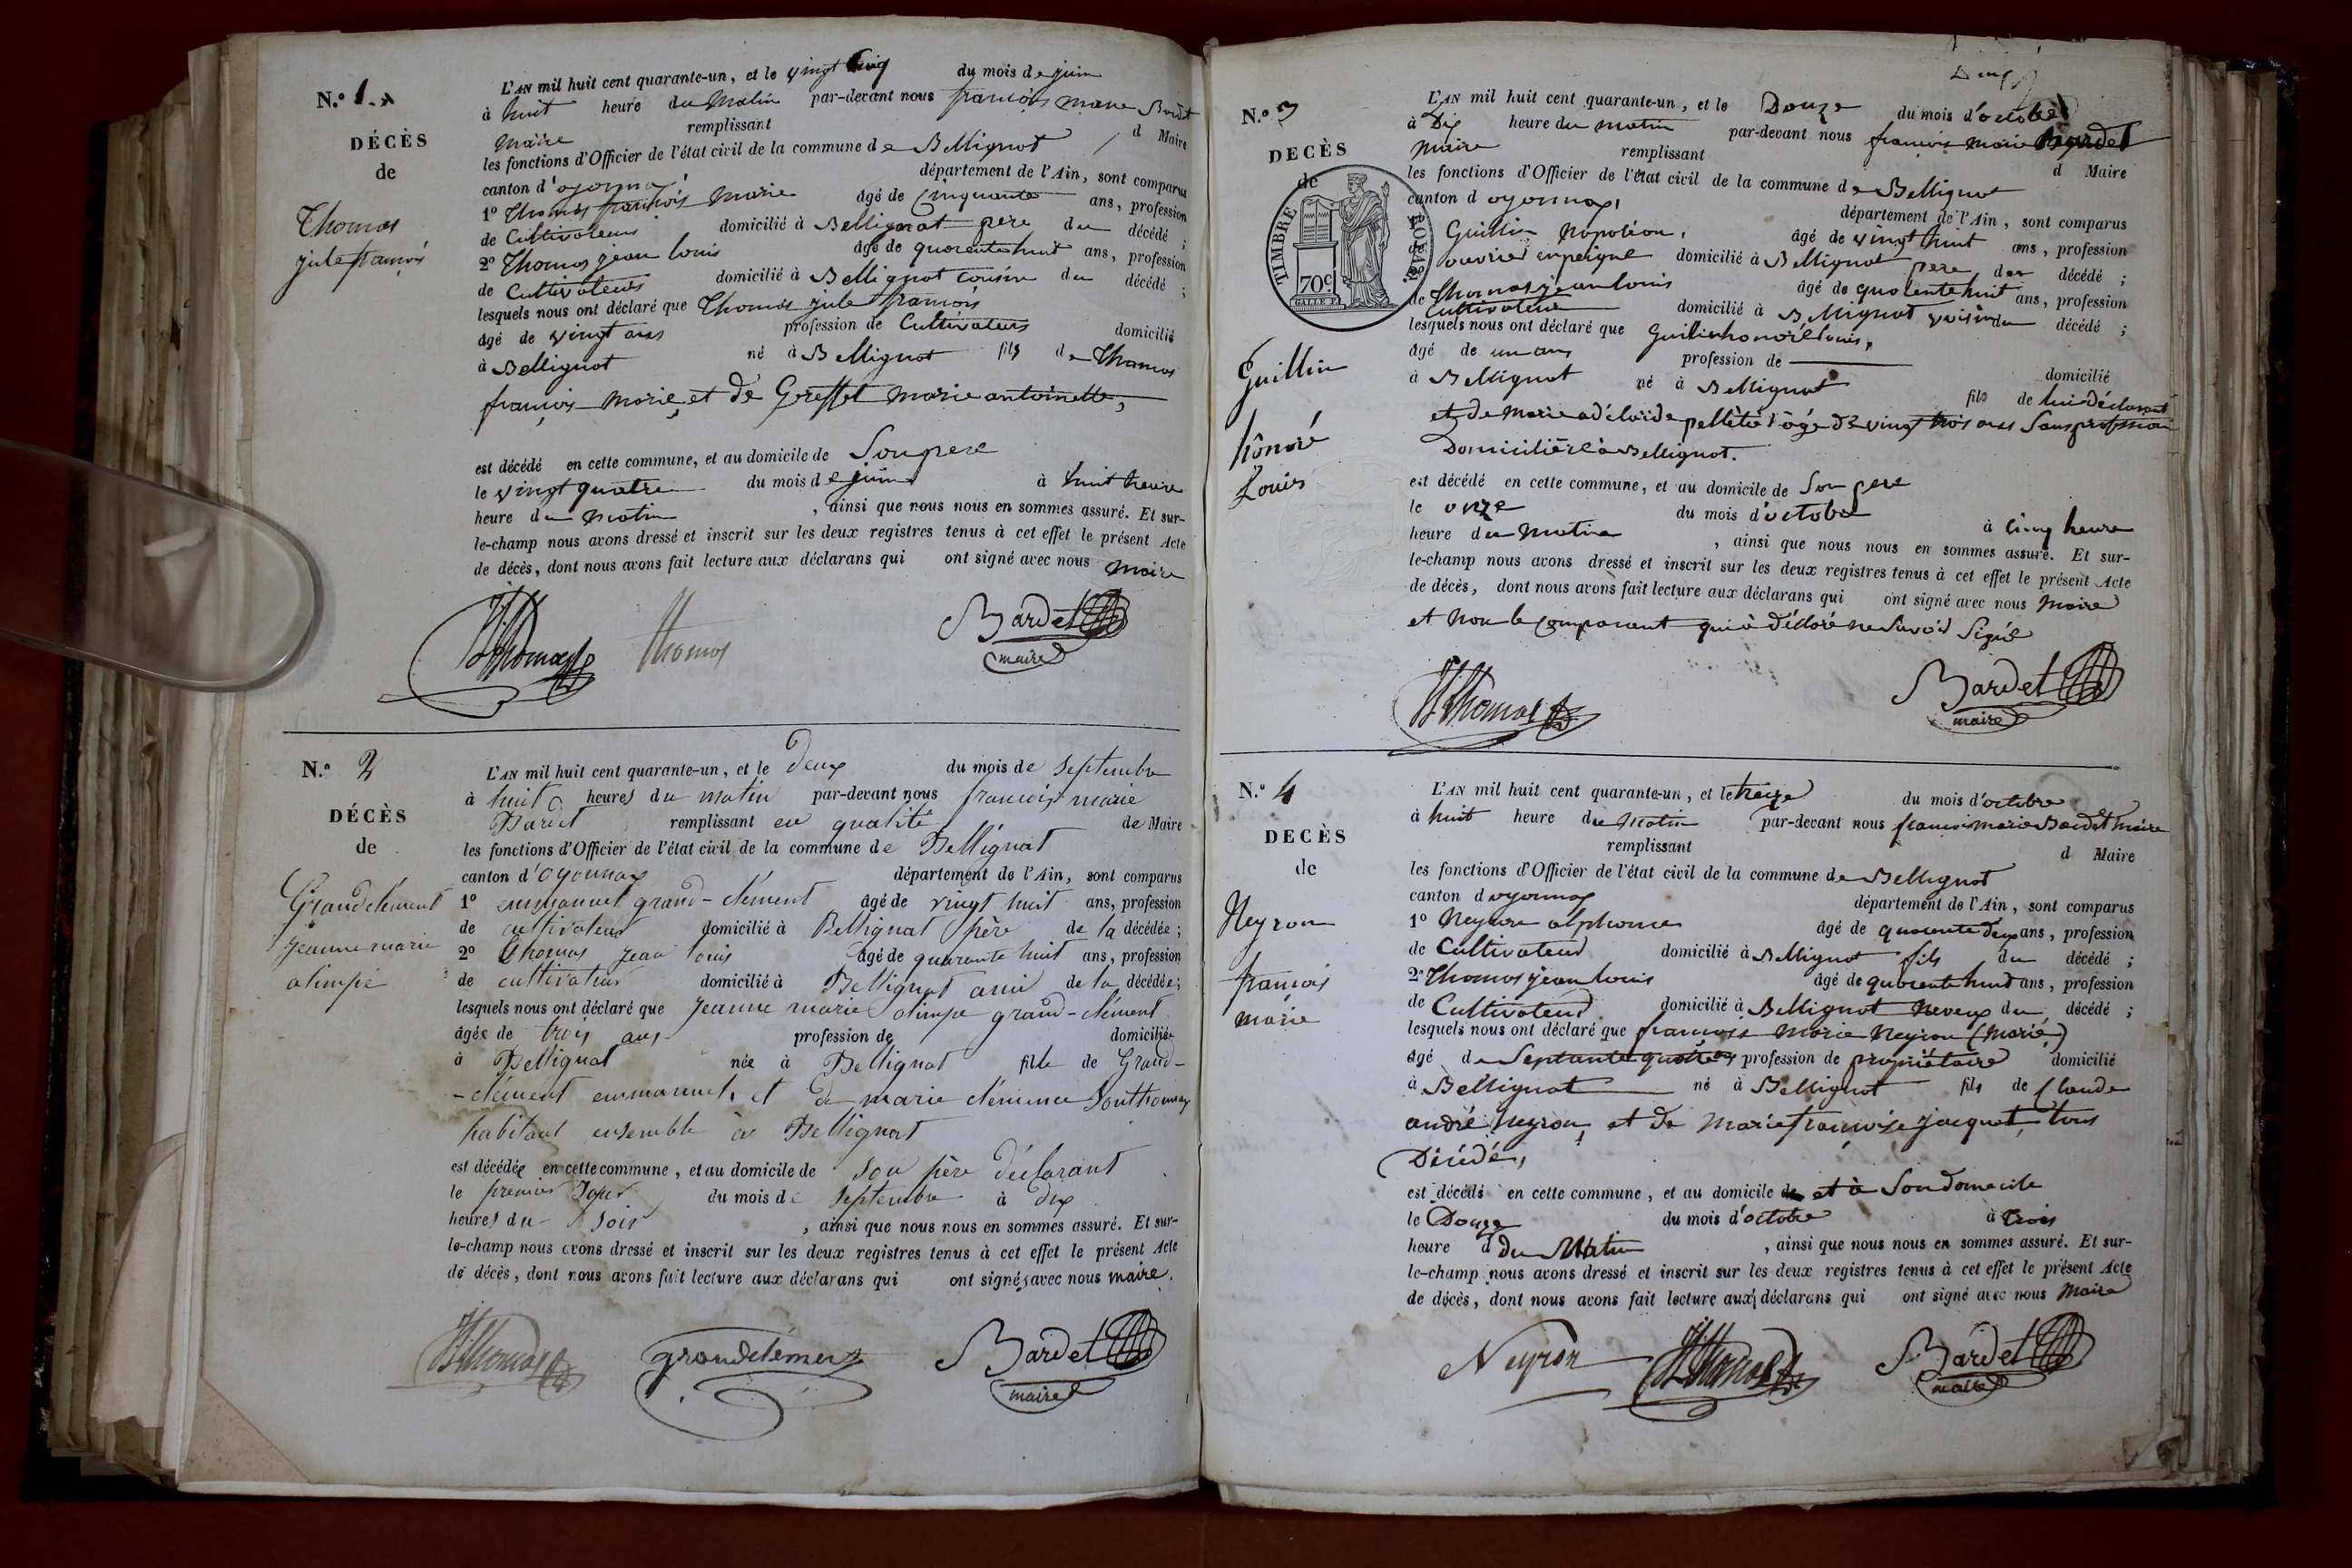 N.º 1.
DÉCÈS
de
Thomas
jule françois
L'AN mil huit cent quarante-un, et le vingt cinq du mois de juin
à huit heure du matin par-devant nous françois marie Bardet
maire remplissant d Maire
les fonctions d'Officier de l'état civil de la commune de Bellignat
canton d'oyonnax département de l'Ain, sont comparus
1º Thomas françois marie âgé de Cinquante ans, profession
de Cultivateur domicilié à Bellignat père du décédé ;
2º Thomas jean louis âgé de quarente huit ans, profession
de Cultivateur domicilié à Bellignat cousin du décédé ;
lesquels nous ont déclaré que Thomas jule françois
âgé de vingt ans profession de Cultivateur domicilié
à Bellignat né à Bellignat fils de Thomas
françois marie, et de Greffet marie antoinette,
est décédé en cette commune, et au domicile de Son pere
le vingt quatre du mois de juin à huit heure
heure du matin , ainsi que nous nous en sommes assuré. Et sur-
le-champ nous avons dressé et inscrit sur les deux registres tenus à cet effet le présent Acte
de décès, dont nous avons fait lecture aux déclarans qui ont signé avec nous maire
Thomas Thomas Bardet
maire
N.º 2
DÉCÈS
de
Grandclément
jeanne marie
olimpe
L'AN mil huit cent quarante-un, et le deux du mois de septembre
à huit heures du matin par-devant nous françois marie
Bardet remplissant en qualité de Maire
les fonctions d'Officier de l'état civil de la commune de Bellignat
canton d'oyonnax département de l'Ain, sont comparus
1º emmanuel grand-clément âgé de vingt huit ans, profession
de cultivateur domicilié à Bellignat père de la décédée ;
2º Thomas jean louis âgé de quarante huit ans, profession
de cultivateur domicilié à Bellignat ami de la décédée ;
lesquels nous ont déclaré que jeanne marie olimpe grand-clément
âgée de trois ans profession de domiciliée
à Bellignat née à Bellignat fille de Grand-
-clément emmanuel, et de marie clémence
habitant ensemble à Bellignat
est décédée en cette commune, et au domicile de son père déclarant
le premier jour du mois de septembre à dix
heures du soir , ainsi que nous nous en sommes assuré. Et sur-
le-champ nous avons dressé et inscrit sur les deux registres tenus à cet effet le présent Acte
de décès, dont nous avons fait lecture aux déclarans qui ont signés avec nous maire.
Thomas grandclément Bardet
maire
Deux
N.º 3
DECÈS
de
TIMBRE ROYAL
70c
Guillin
hônoré
Louis
L'AN mil huit cent quarante-un, et le Douze du mois d'octobre
à Dix heure du matin par-devant nous françois marie Bardet
maire remplissant d Maire
les fonctions d'Officier de l'état civil de la commune de Bellignat
canton d oyonnax, département de l'Ain, sont comparus
Guillin Napoléon, âgé de vingt huit ans, profession
de ouvrier en peigne domicilié à Bellignat pere du décédé ;
Thomas jean louis âgé de quarente huit ans, profession
de Cultivateur domicilié à Bellignat voisin du décédé ;
lesquels nous ont déclaré que Guillin honoré louis,
âgé de un ans profession de domicilié
à Bellignat né à Bellignat fils de lui déclarant
et de marie adélaïde âgé de vingt trois ans Sans profession
Domicilière à Bellignat.
est décédé en cette commune, et au domicile de Son pere
le onze du mois d'octobre à Cinq heure
heure du matin , ainsi que nous nous en sommes assuré. Et sur-
le-champ nous avons dressé et inscrit sur les deux registres tenus à cet effet le présent Acte
de décès, dont nous avons fait lecture aux déclarans qui ont signé avec nous maire
et non le Comparant qui à déclaré ne Savoir Signé
Thomas Bardet
maire
N.º 4
DECÈS
de
Neyron
françois
marie
L'AN mil huit cent quarante-un, et le treize du mois d'octobre
à huit heure du matin par-devant nous françois marie Bardet maire
remplissant d Maire
les fonctions d'Officier de l'état civil de la commune de Bellignat
canton d oyonnax département de l'Ain, sont comparus
1º Neyron alphonse âgé de quarente deux ans, profession
de Cultivateur domicilié à Bellignat fils du décédé ;
2º Thomas jean louis âgé de quarente huit ans, profession
de Cultivateur domicilié à Bellignat Neveux du décédé ;
lesquels nous ont déclaré que françois marie Neyron (marié)
âgé de Septante quatre profession de propriétaire domicilié
à Bellignat né à Bellignat fils de Claude
andré Neyron, et de marie françoise jacquet, tous
Décédé,
est décédé en cette commune, et au domicile de et à Son domicile
le Douze du mois d'octobre à trois
heure d du Matin , ainsi que nous nous en sommes assuré. Et sur-
le-champ nous avons dressé et inscrit sur les deux registres tenus à cet effet le présent Acte
de décès, dont nous avons fait lecture aux déclarans qui ont signé avec nous maire
Neyron Thomas Bardet
maire